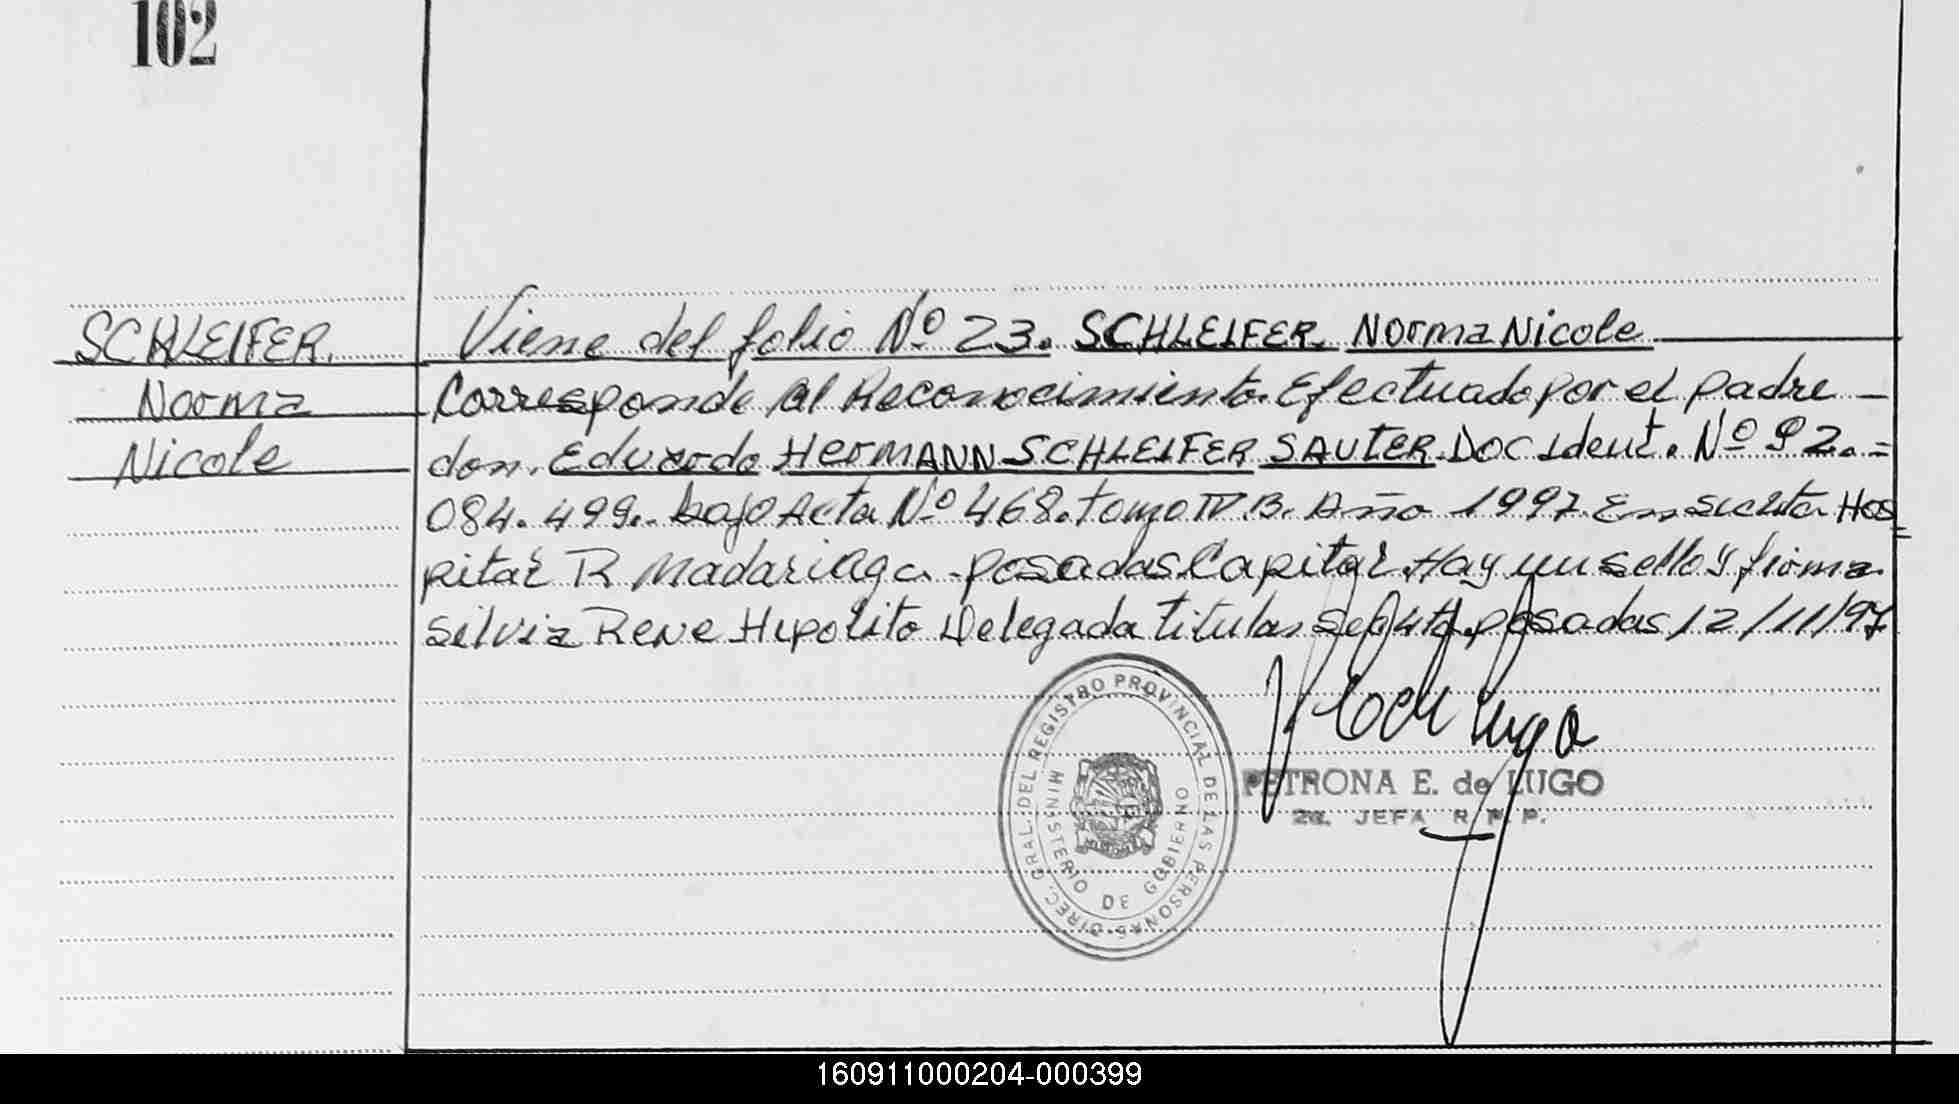 102
SCHLEIFER.
Norma
Nicole
Viene del folio Nº 23. SCHLEIFER. Norma Nicole
Corresponde al Reconocimiento. Efectuado por el padre
don. Eduardo HerMANN SCHLEIFER SAUTER. DOC Ident. Nº 92. =
084.499.. bajo Acta Nº 468. tomo IV.B. Año 1997. En secc 4ta Hos
pital R Madariaga. Posadas Capital. Hay un sello y firma
Silvia Rene Hipolito Delegada titular Secc 4ta. posadas 12/11/97
PETRONA E. de LUGO
2a. JEFA R. P. P.
DIREC. GRAL. DEL REGISTRO PROVINCIAL DE LAS PERSONAS
MINISTERIO DE GOBIERNO
160911000204-000399